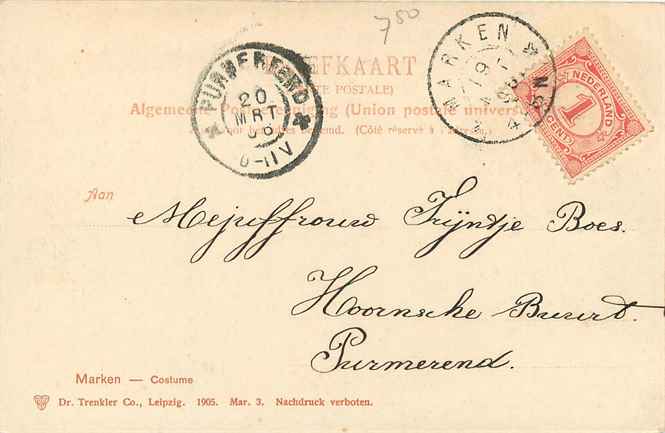 750
BRIEFKAART
(CARTE POSTALE)
Algemeene Postvereeniging (Union postale universelle)
(Côté réservé à l'adresse)
PURMEREND
20
MRT
06
MARKEN
19
NEDERLAND
1
CENT
Aan
Mejuffrouw Trijntje Boes.
Hoornsche Buurt.
Purmerend.
Marken — Costume
Dr. Trenkler Co., Leipzig. 1905. Mar. 3. Nachdruck verboten.